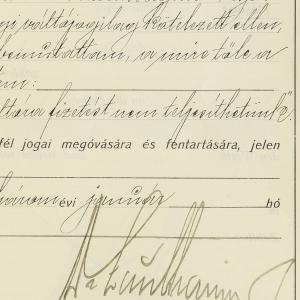 váltójogilag kötelezett ellen,
bemutattam, a mire tőle a
fizetést nem teljesíthetünk".
fél jogai megóvására és fentartására, jelen
évi január hó